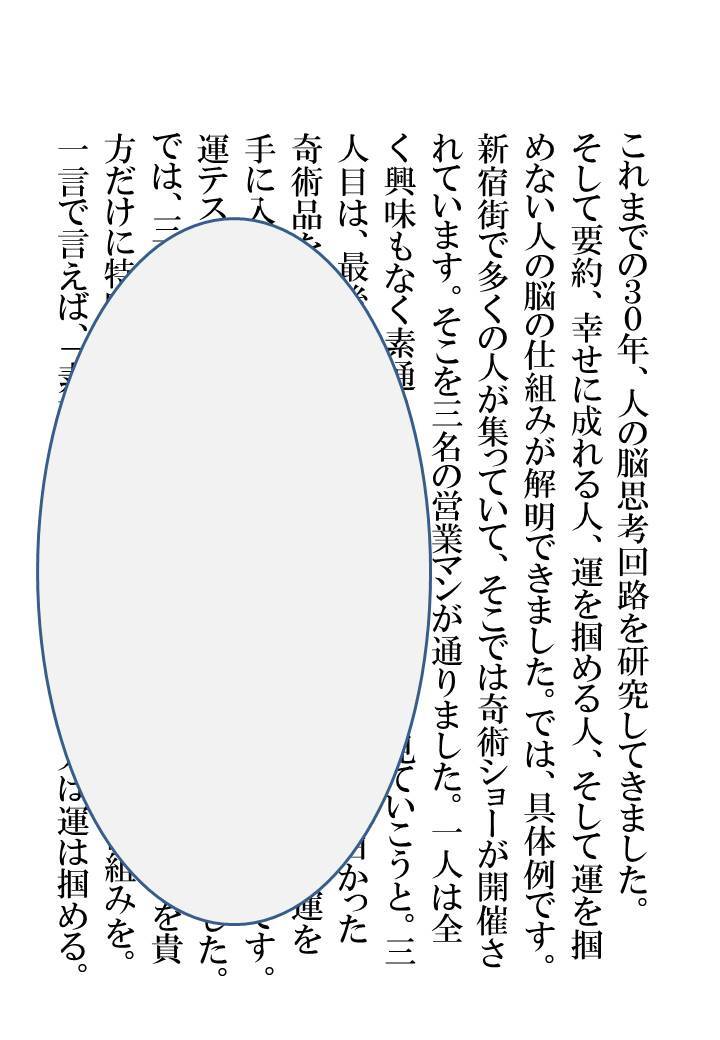 これまでの30年、人の脳思考回路を研究してきました。
そして要約、幸せに成れる人、運を掴める人、そして運を掴
めない人の脳の仕組みが解明できました。では、具体例です。
新宿街で多くの人が集っていて、そこでは奇術ショーが開催さ
れています。そこを三名の営業マンが通りました。一人は全
く興味もなく素通 ていこうと。三
人目は、最 かった
奇術品を 運を
手に入 です。
運テス した。
では、三 を貴
方だけに特 組みを。
一言で言えば、「素 は運は掴める。